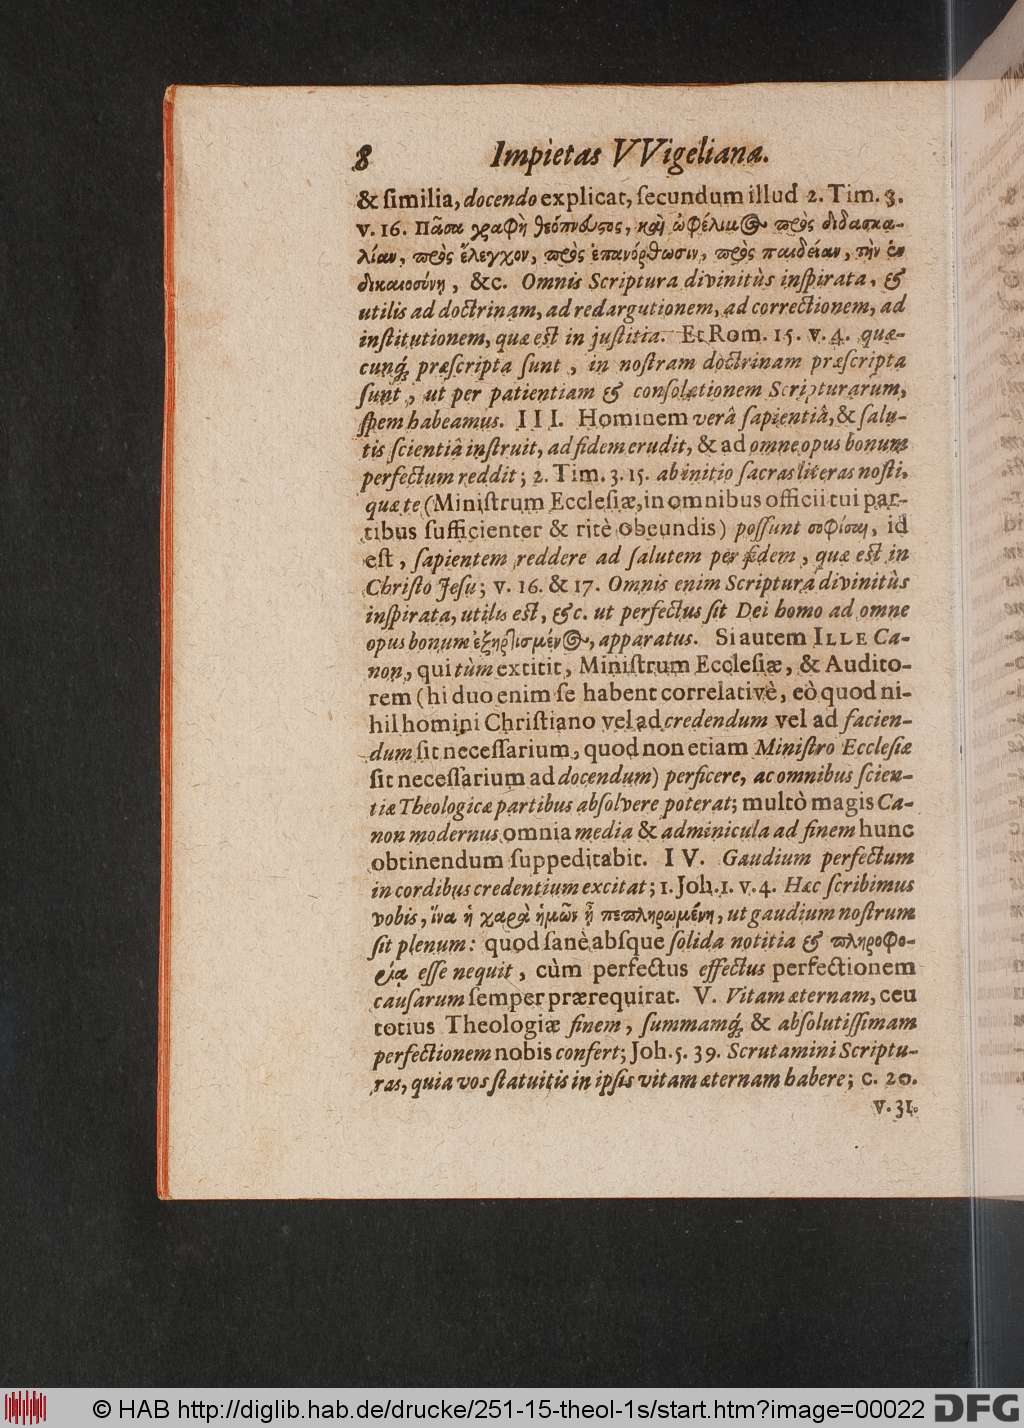 8 Impietas VVigeliana.
& ſimilia, docendo explicat, ſecundum illud 2. Tim. 3.
v. 16. Πᾶσα γραφὴ θεόπνευστος, καὶ ὠφέλιμος πρὸς διδασκα-
λίαν, πρὸς ἔλεγχον, πρὸς ἐπανόρθωσιν, πρὸς παιδείαν, τὴν ἐν
δικαιοσύνῃ, &c. Omnis Scriptura divinitùs inſpirata, &
utilis ad doctrinam, ad redargutionem, ad correctionem, ad
inſtitutionem, quæ eſt in juſtitia. Et Rom. 15. v. 4. quæ-
cunq́; præſcripta ſunt, in noſtram doctrinam præſcripta
ſunt, ut per patientiam & conſolationem Scripturarum,
ſpem habeamus. III. Hominem verâ ſapientiâ, & ſalu-
tis ſcientiâ inſtruit, ad fidem erudit, & ad omne opus bonum
perfectum reddit; 2. Tim. 3. 15. ab initio ſacras literas noſti,
quæ te (Miniſtrum Eccleſiæ, in omnibus officii tui par-
tibus ſufficienter & ritè obeundis) poſſunt σοφίσαι, id
eſt, ſapientem reddere ad ſalutem per fidem, quæ eſt in
Chriſto Jeſu; v. 16. & 17. Omnis enim Scriptura divinitùs
inſpirata, utilis eſt, &c. ut perfectus ſit Dei homo ad omne
opus bonum ἐξηρτισμένος, apparatus. Si autem ILLE Ca-
non, qui tùm extitit, Miniſtrum Eccleſiæ, & Audito-
rem (hi duo enim ſe habent correlativè, eò quod ni-
hil homini Chriſtiano vel ad credendum vel ad facien-
dum ſit neceſſarium, quod non etiam Miniſtro Eccleſiæ
ſit neceſſarium ad docendum) perficere, ac omnibus ſcien-
tiæ Theologicæ partibus abſolvere poterat; multò magis Ca-
non modernus omnia media & adminicula ad finem hunc
obtinendum ſuppeditabit. IV. Gaudium perfectum
in cordibus credentium excitat; 1. Joh. 1. v. 4. Hæc ſcribimus
vobis, ἵνα ἡ χαρὰ ἡμῶν ᾖ πεπληρωμένη, ut gaudium noſtrum
ſit plenum: quod ſanè abſque ſolida notitia & πληροφο-
ρίᾳ eſſe nequit, cùm perfectus effectus perfectionem
cauſarum ſemper prærequirat. V. Vitam æternam, ceu
totius Theologiæ finem, ſummamq́; & abſolutiſſimam
perfectionem nobis confert; Joh. 5. 39. Scrutamini Scriptu-
ras, quia vos ſtatuitis in ipſis vitam æternam habere; c. 20.
v. 31.
© HAB http://diglib.hab.de/drucke/251-15-theol-1s/start.htm?image=00022 DFG